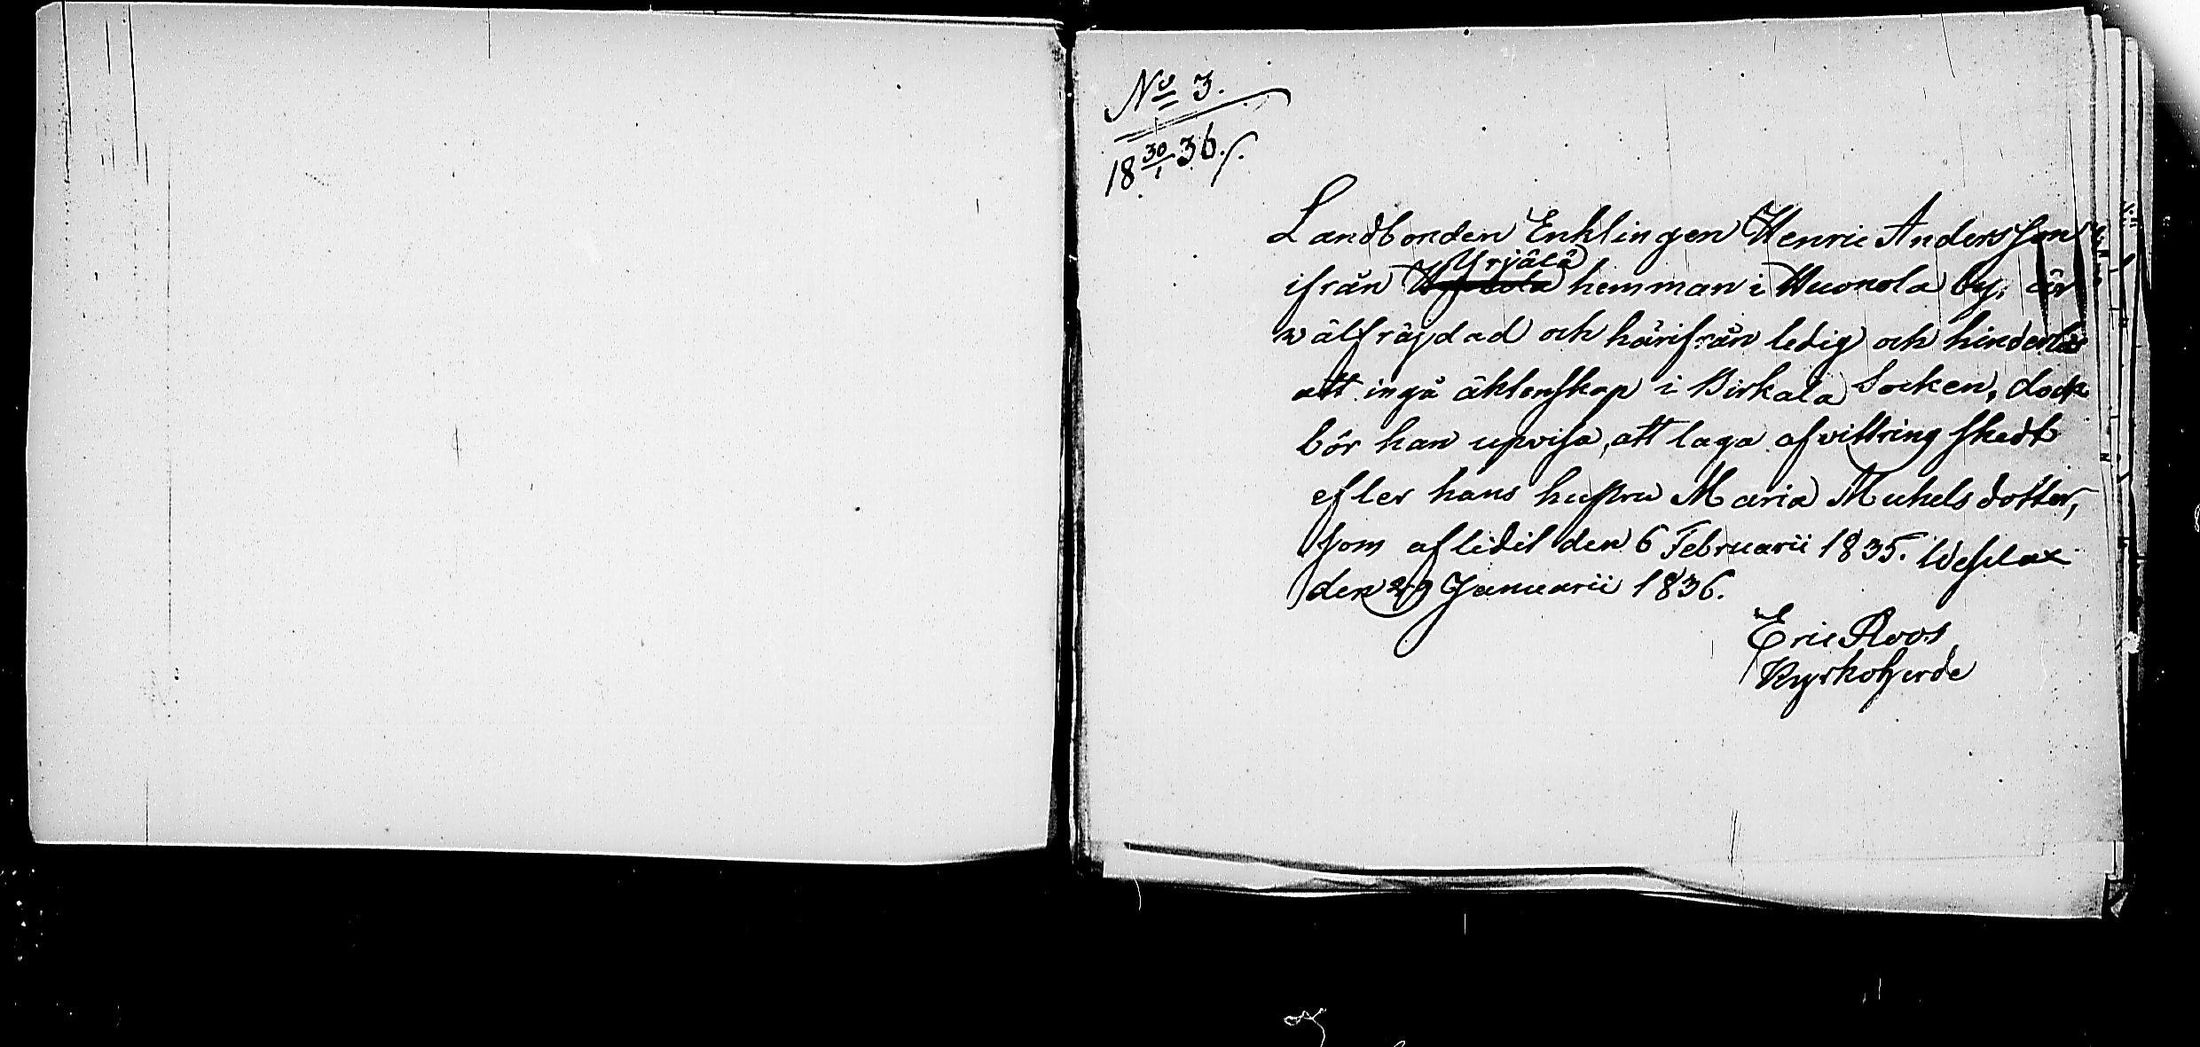 No 3.
18 30/1 36.
Landbonden Enklingen Henric Andersson
ifrån Yrjälä hemman i Huonola by, är
wälfräjdad och härifrån ledig och hinderlös
att ingå äktenskap i Birkala Socken, dock
bör han upvisa, att laga afvittring skedt
efter hans hustru Maria Michelsdotter,
som aflidit den 6 Februarii 1835. Wesilax
den 29 Januarii 1836.
Eric Roos
Kyrkoherde